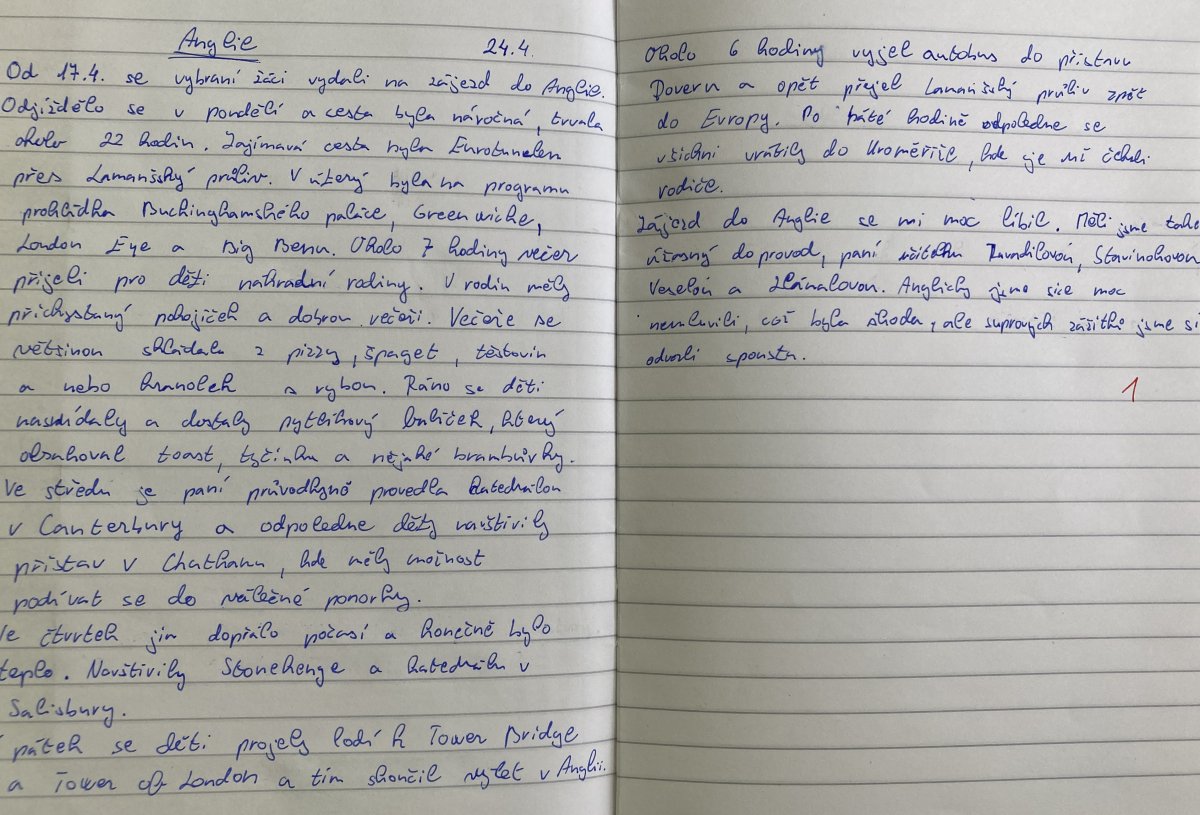 Anglie 24.4.
Od 17.4. se vybraní žáci vydali na zájezd do Anglie.
Odjíždělo se v pondělí a cesta byla náročná, trvala
okolo 22 hodin. Zajímavá cesta byla Eurotunelem
přes Lamanšský průliv. V úterý byla na programu
prohlídka Buchinghamského paláce, Greenwiche,
London Eye a Big Benu. Okolo 7 hodiny večer
přijeli pro děti náhradní rodiny. V rodin měly
přichystaný pokojíček a dobrou večeři. Večeře se
většinou skládala z pizzy, špaget, těstovin
a nebo hranolek s rybou. Ráno se děti
nasnídaly a dostaly pytlíkový balíček, který
obsahoval toast, tyčinku a nějaké brambůrky.
Ve středu je paní průvodkyně provedla Katedrálou
v Canterbury a odpoledne děti navštívily
přístav v Chathamu, kde měly možnost
podívat se do válečné ponorky.
Ve čtvrtek jim dopřálo počasí a konečně bylo
teplo. Navštívily Stonehenge a katedrálu v
Salisbury.
pátek se děti projely lodí k Tower Bridge
a Tower of London a tím skončil výlet v Anglii.
Okolo 6 hodiny vyjel autobus do přístavu
Doveru a opět přejel Lamanšský průliv zpět
do Evropy. Po páté hodině odpoledne se
všichni vrátily do Kroměříže, kde je již čekali
rodiče.
Zájezd do Anglie se mi moc líbil. Měli jsme také
úžasný doprovod, paní učitelku Zavadilovou, Stavinohovou
Veselou a Zlámalovou. Anglicky jsme sice moc
nemluvili, což byla škoda, ale suprových zážitků jsme si
odvezli spoustu.
1